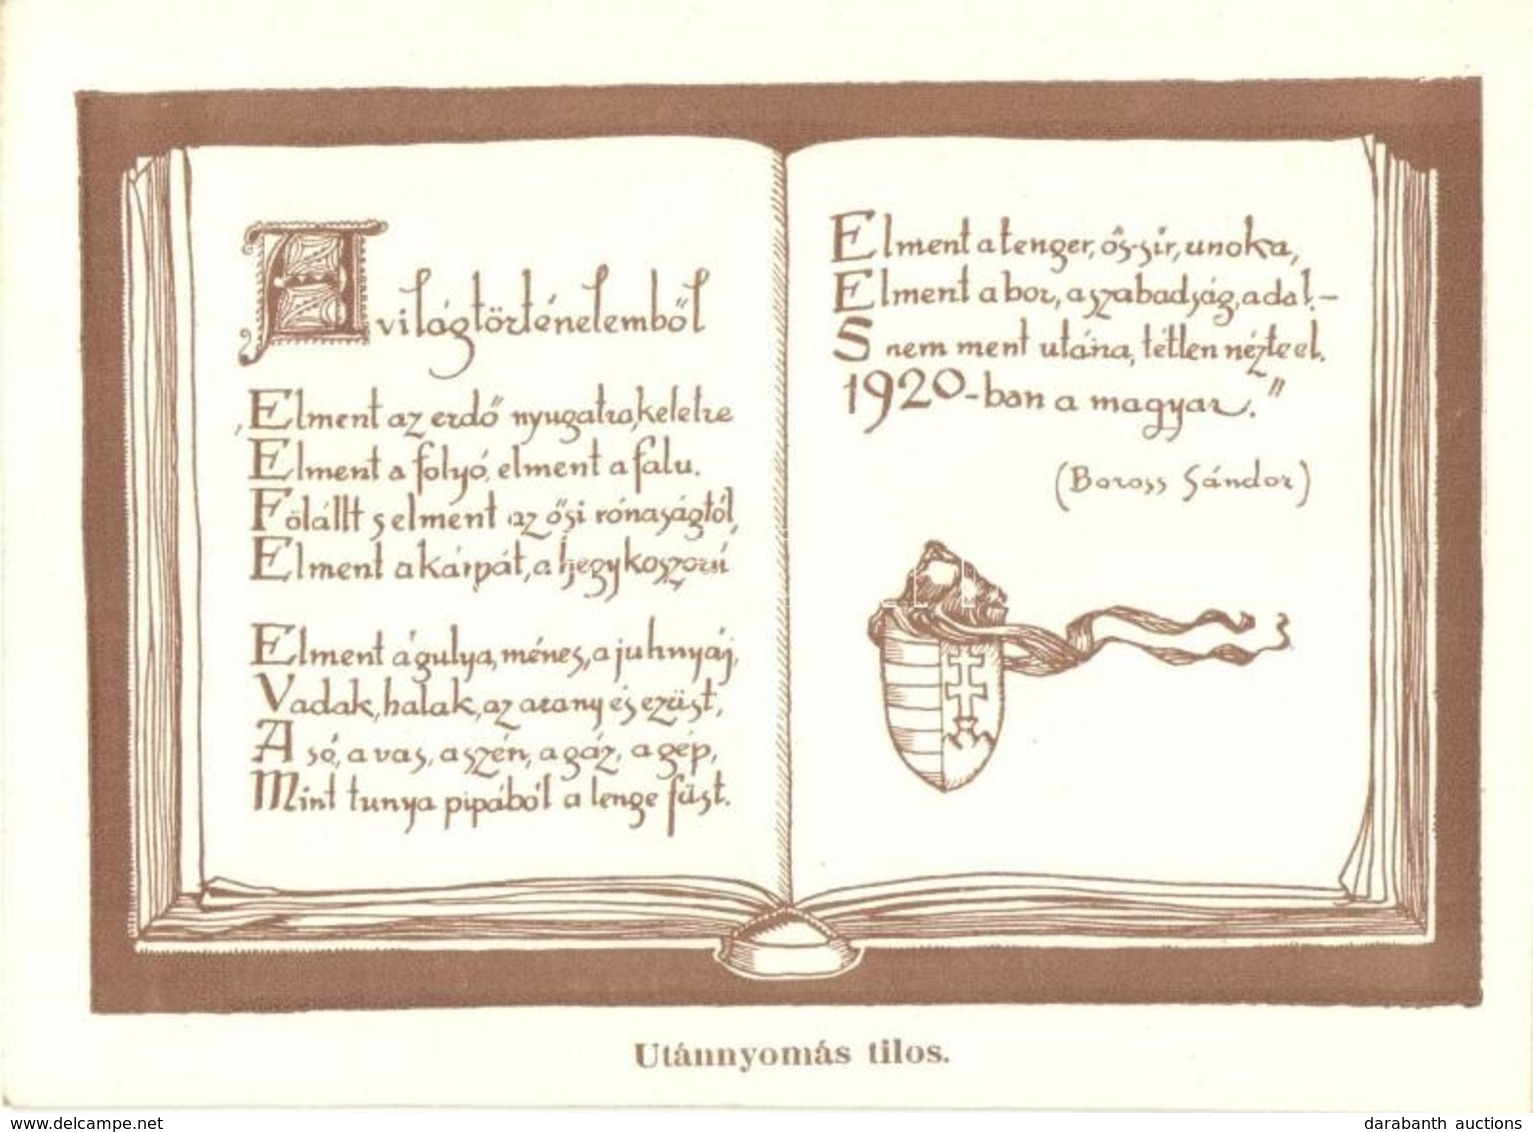 A világtörténelemből
„Elment az erdő nyugatra, keletre
Elment a folyó, elment a falu.
Fölállt s elment az ősi rónaságtól,
Elment a Kárpát, a hegykoszorú
Elment a gulya, ménes, a juhnyáj,
Vadak, halak, az arany és ezüst,
A só, a vas, a szén, a gáz, a gép,
Mint tunya pipából a lenge füst.
Elment a tenger, ős-sír, unoka,
Elment a bor, a szabadság, a dal. –
S nem ment utána, tétlen nézte el.
1920-ban a magyar."
(Boross Sándor)
Utánnyomás tilos.
www.delcampe.net
darabanth auctions